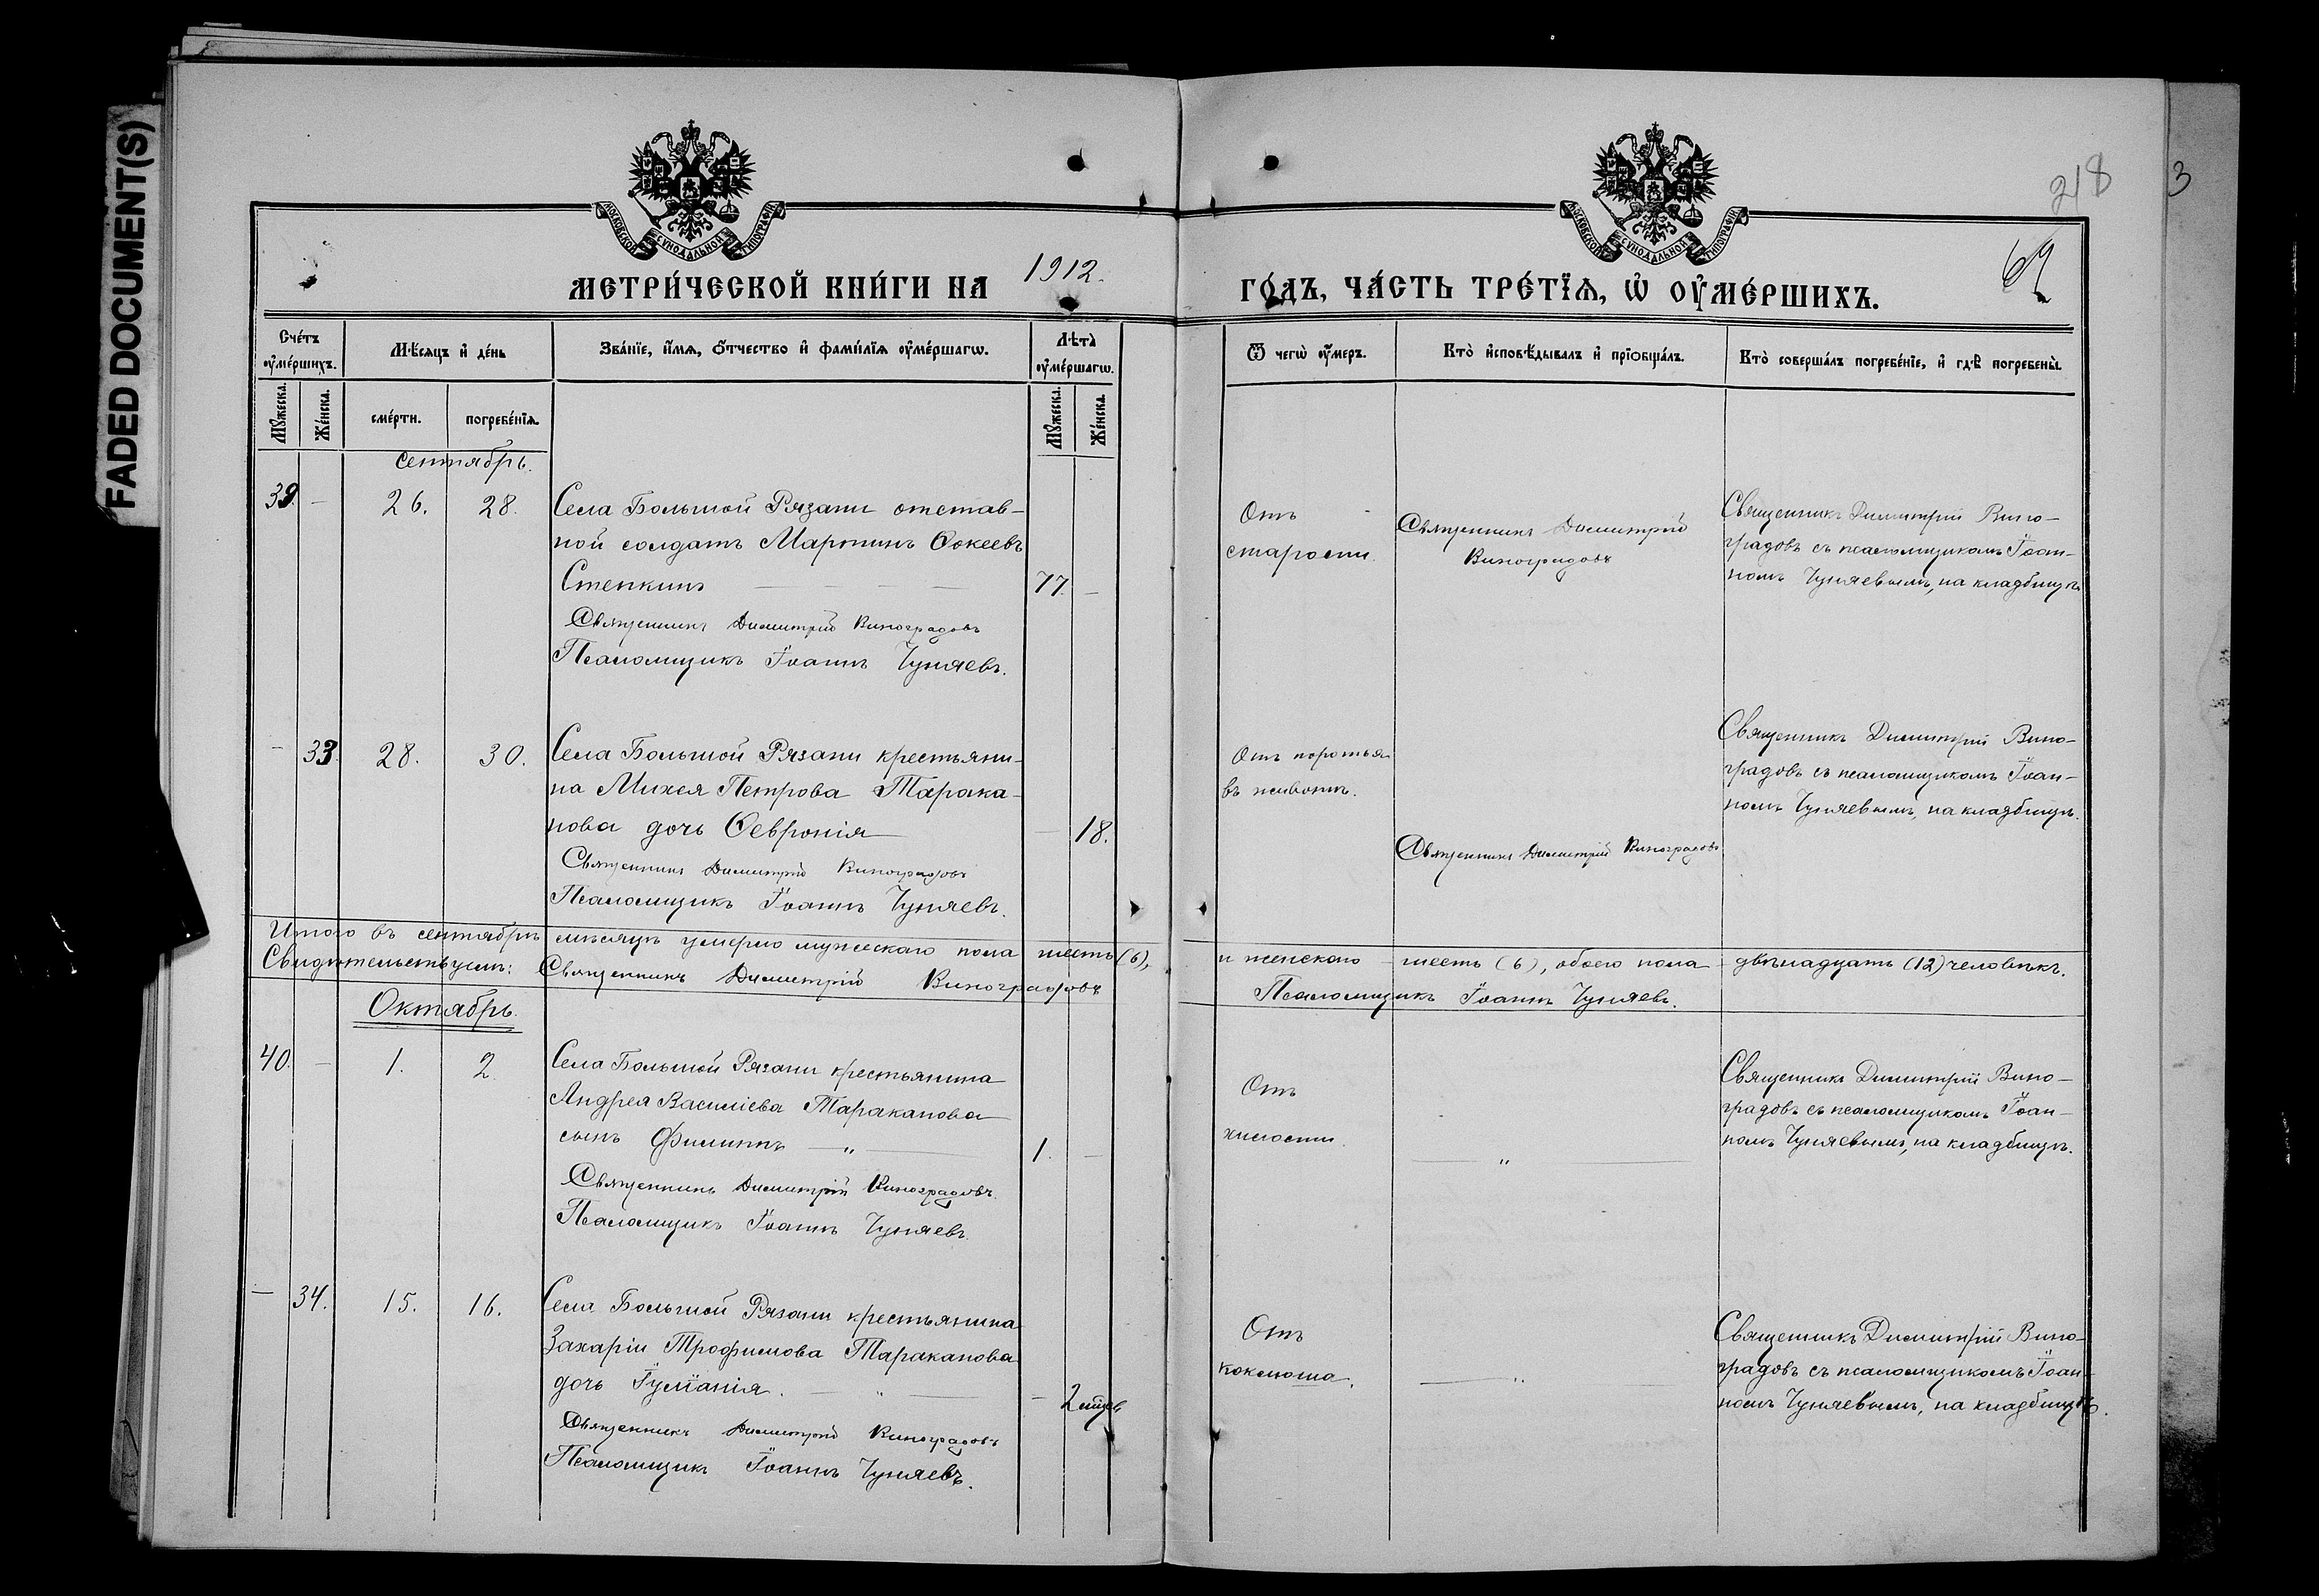 FADED DOCUMENT(S)
218
3
69
МОСКОВСКОЙ СѴНОДАЛЬНОЙ ТИПОГРАФІИ
МОСКОВСКОЙ СѴНОДАЛЬНОЙ ТИПОГРАФІИ
МЕТРИ́ЧЕСКОЙ КНИ́ГИ НА 1912. ГО́ДЪ, ЧА́СТЬ ТРЕ́ТІѦ, Ѡ҆ ОУ҆МЕ́РШИХЪ.
Сче́тъ оу҆ме́ршихъ.
Мѣ́сѧцъ и҆ де́нь
Зва́нїе, и҆́мѧ, ѻ҆́тчество и҆ фами́лїѧ оу҆ме́ршагѡ.
Лѣ́та оу҆ме́ршагѡ.
Ѿ чегѡ̀ оу҆́меръ.
Кто̀ и҆сповѣ́дывалъ и҆ прїѻбща́лъ.
Кто̀ соверша́лъ погребе́нїе, и҆ гдѣ̀ погребены̀.
Мꙋ́жеска.
Же́нска.
сме́рти.
погребе́нїѧ.
Мꙋ́жеска.
Же́нска.
Сентябрь.
39. — 26. 28.
Села Большой Рязани отстав-
ной солдатъ Мартинъ Ѳокеевъ
Степкинъ — 77. —
Священникъ Димитрій Виноградовъ
Псаломщикъ Іоаннъ Чуняевъ.
Отъ
старости.
Священникъ Димитрій
Виноградовъ
Священникъ Димитрій Вино-
градовъ съ псаломщикомъ Іоан-
номъ Чуняевымъ, на кладбищѣ
— 33. 28. 30.
Села Большой Рязани крестьяни-
на Михея Петрова Тарака-
нова дочь Ѳевронія — 18.
Священникъ Димитрій Виноградовъ
Псаломщикъ Іоаннъ Чуняевъ.
Отъ поротья
въ животѣ.
Священникъ Димитрій Виноградовъ
Священникъ Димитрій Вино-
градовъ съ псаломщикомъ Іоан-
номъ Чуняевымъ, на кладбищѣ.
Итого въ сентябрѣ мѣсяцѣ умерло мужескаго пола шесть (6), и женскаго шесть (6), обоего пола двѣнадцать (12) человѣкъ.
Свидѣтельствуемъ: Священникъ Димитрій Виноградовъ Псаломщикъ Іоаннъ Чуняевъ.
Октябрь.
40. — 1. 2.
Села Большой Рязани крестьянина
Андрея Василіева Тараканова
сынъ Филиппъ — „ — 1. —
Священникъ Димитрій Виноградовъ
Псаломщикъ Іоаннъ Чуняевъ.
Отъ
хилости.
— „ —
Священникъ Димитрій Вино-
градовъ съ псаломщикомъ Іоан-
номъ Чуняевымъ, на кладбищѣ.
— 34. 15. 16.
Села Большой Рязани крестьянина
Захаріи Трофимова Тараканова
дочь Іуліанія. — „ — — 2 мѣсяц.
Священникъ Димитрій Виноградовъ
Псаломщикъ Іоаннъ Чуняевъ.
Отъ
коклюша.
— „ —
Священникъ Димитрій Вино-
градовъ съ псаломщикомъ Іоан-
номъ Чуняевымъ, на кладбищѣ.